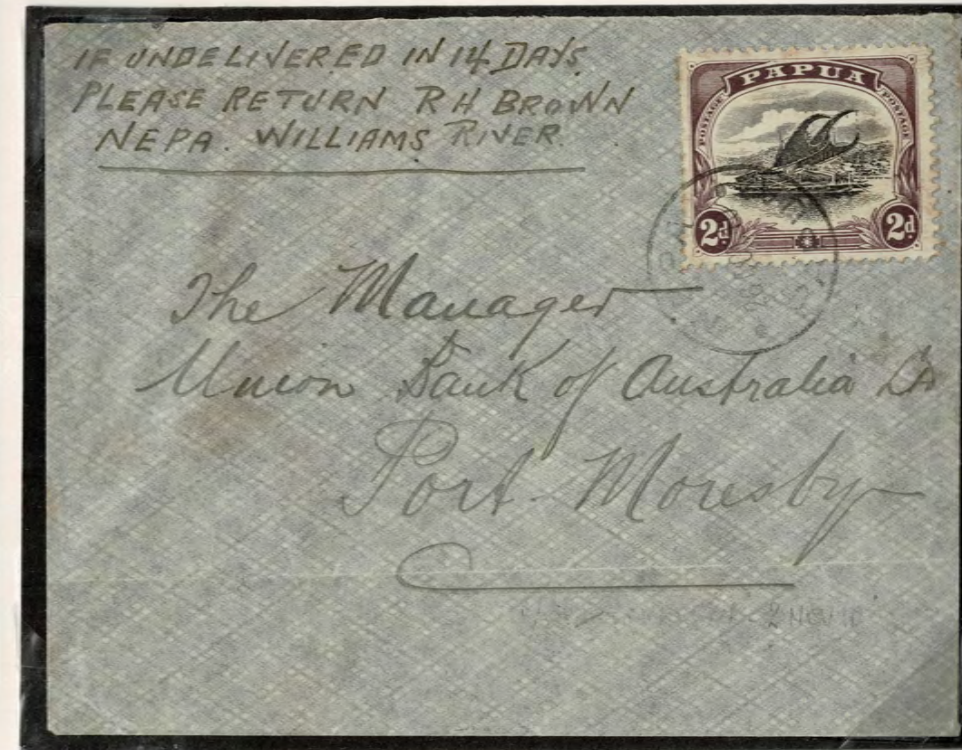 IF UNDELIVERED IN 14 DAYS.
PLEASE RETURN R H BROWN
NEPA. WILLIAMS RIVER.
PAPUA
POSTAGE
POSTAGE
2d.
2d.
The Manager
Union Bank of Australia Ld
Port Moresby